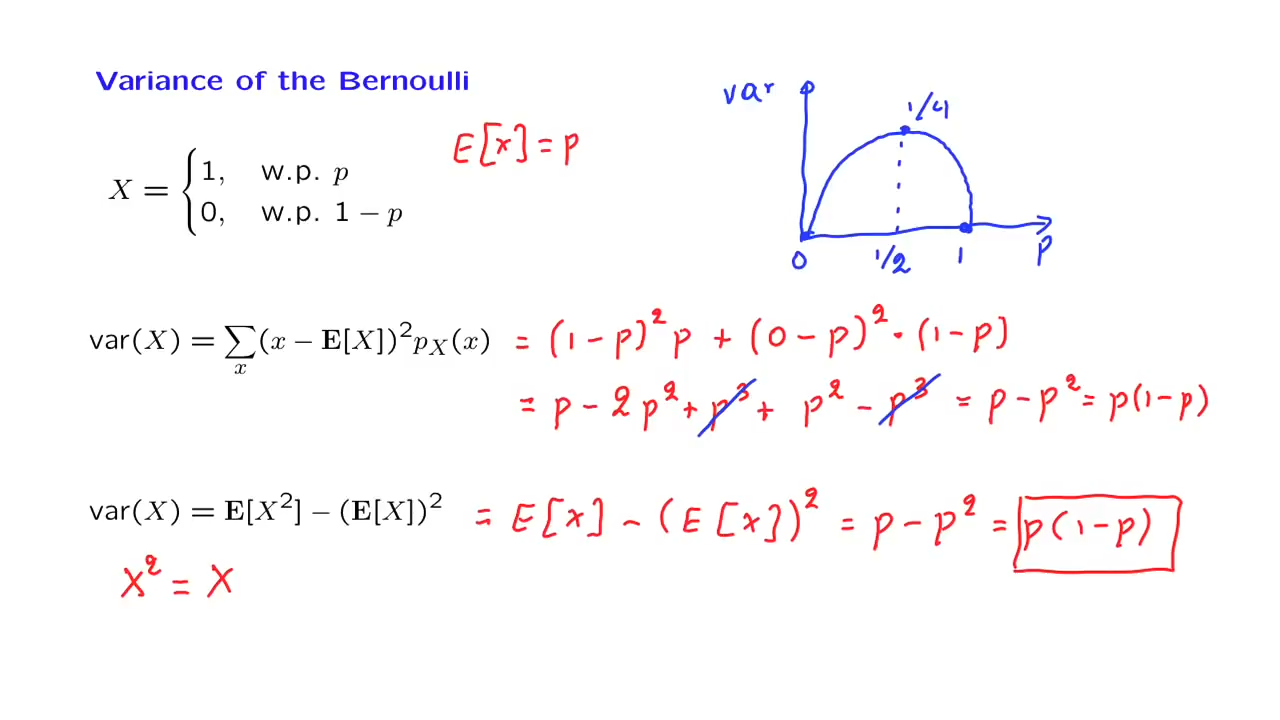 Variance of the Bernoulli
E[X] = p
X = { 1, w.p. p
0, w.p. 1 − p
var
1/4
0 1/2 1 p
var(X) = ∑ₓ (x − E[X])² p_X(x) = (1 − p)² p + (0 − p)² · (1 − p)
= p − 2p² + p³ + p² − p³ = p − p² = p(1 − p)
var(X) = E[X²] − (E[X])² = E[X] − (E[X])² = p − p² = p(1 − p)
X² = X